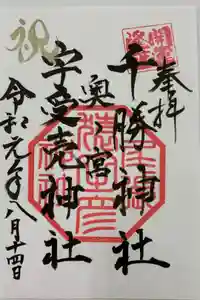 奉拝
千勝神社
奥ノ宮
宇受売神社
令和元年八月十四日
祝